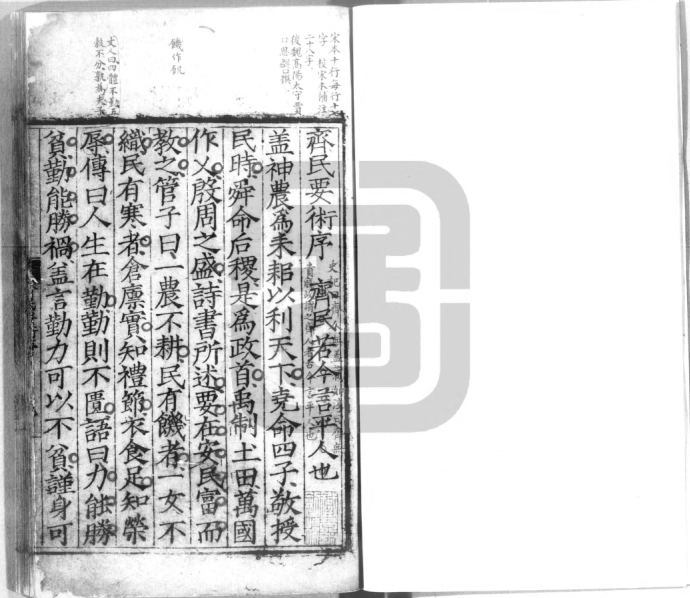 宋本十行每行十
字校宋本補注
二十八字
後魏高陽太守賈
思勰撰
饑作飢
丈人曰四體不勤五
穀不分孰為夫子
齊民要術序 齊民若今言平人也
盖神農為耒耜以利天下堯命四子敬授
民時舜命后稷是為政首禹制土田萬國
作乂殷周之盛詩書所述要在安民富而
教之管子曰一農不耕民有饑者一女不
織民有寒者倉廪實知禮節衣食足知榮
辱傳曰人生在勤勤則不匱語曰力能勝
貧勤能勝禍盖言勤力可以不貧謹身可